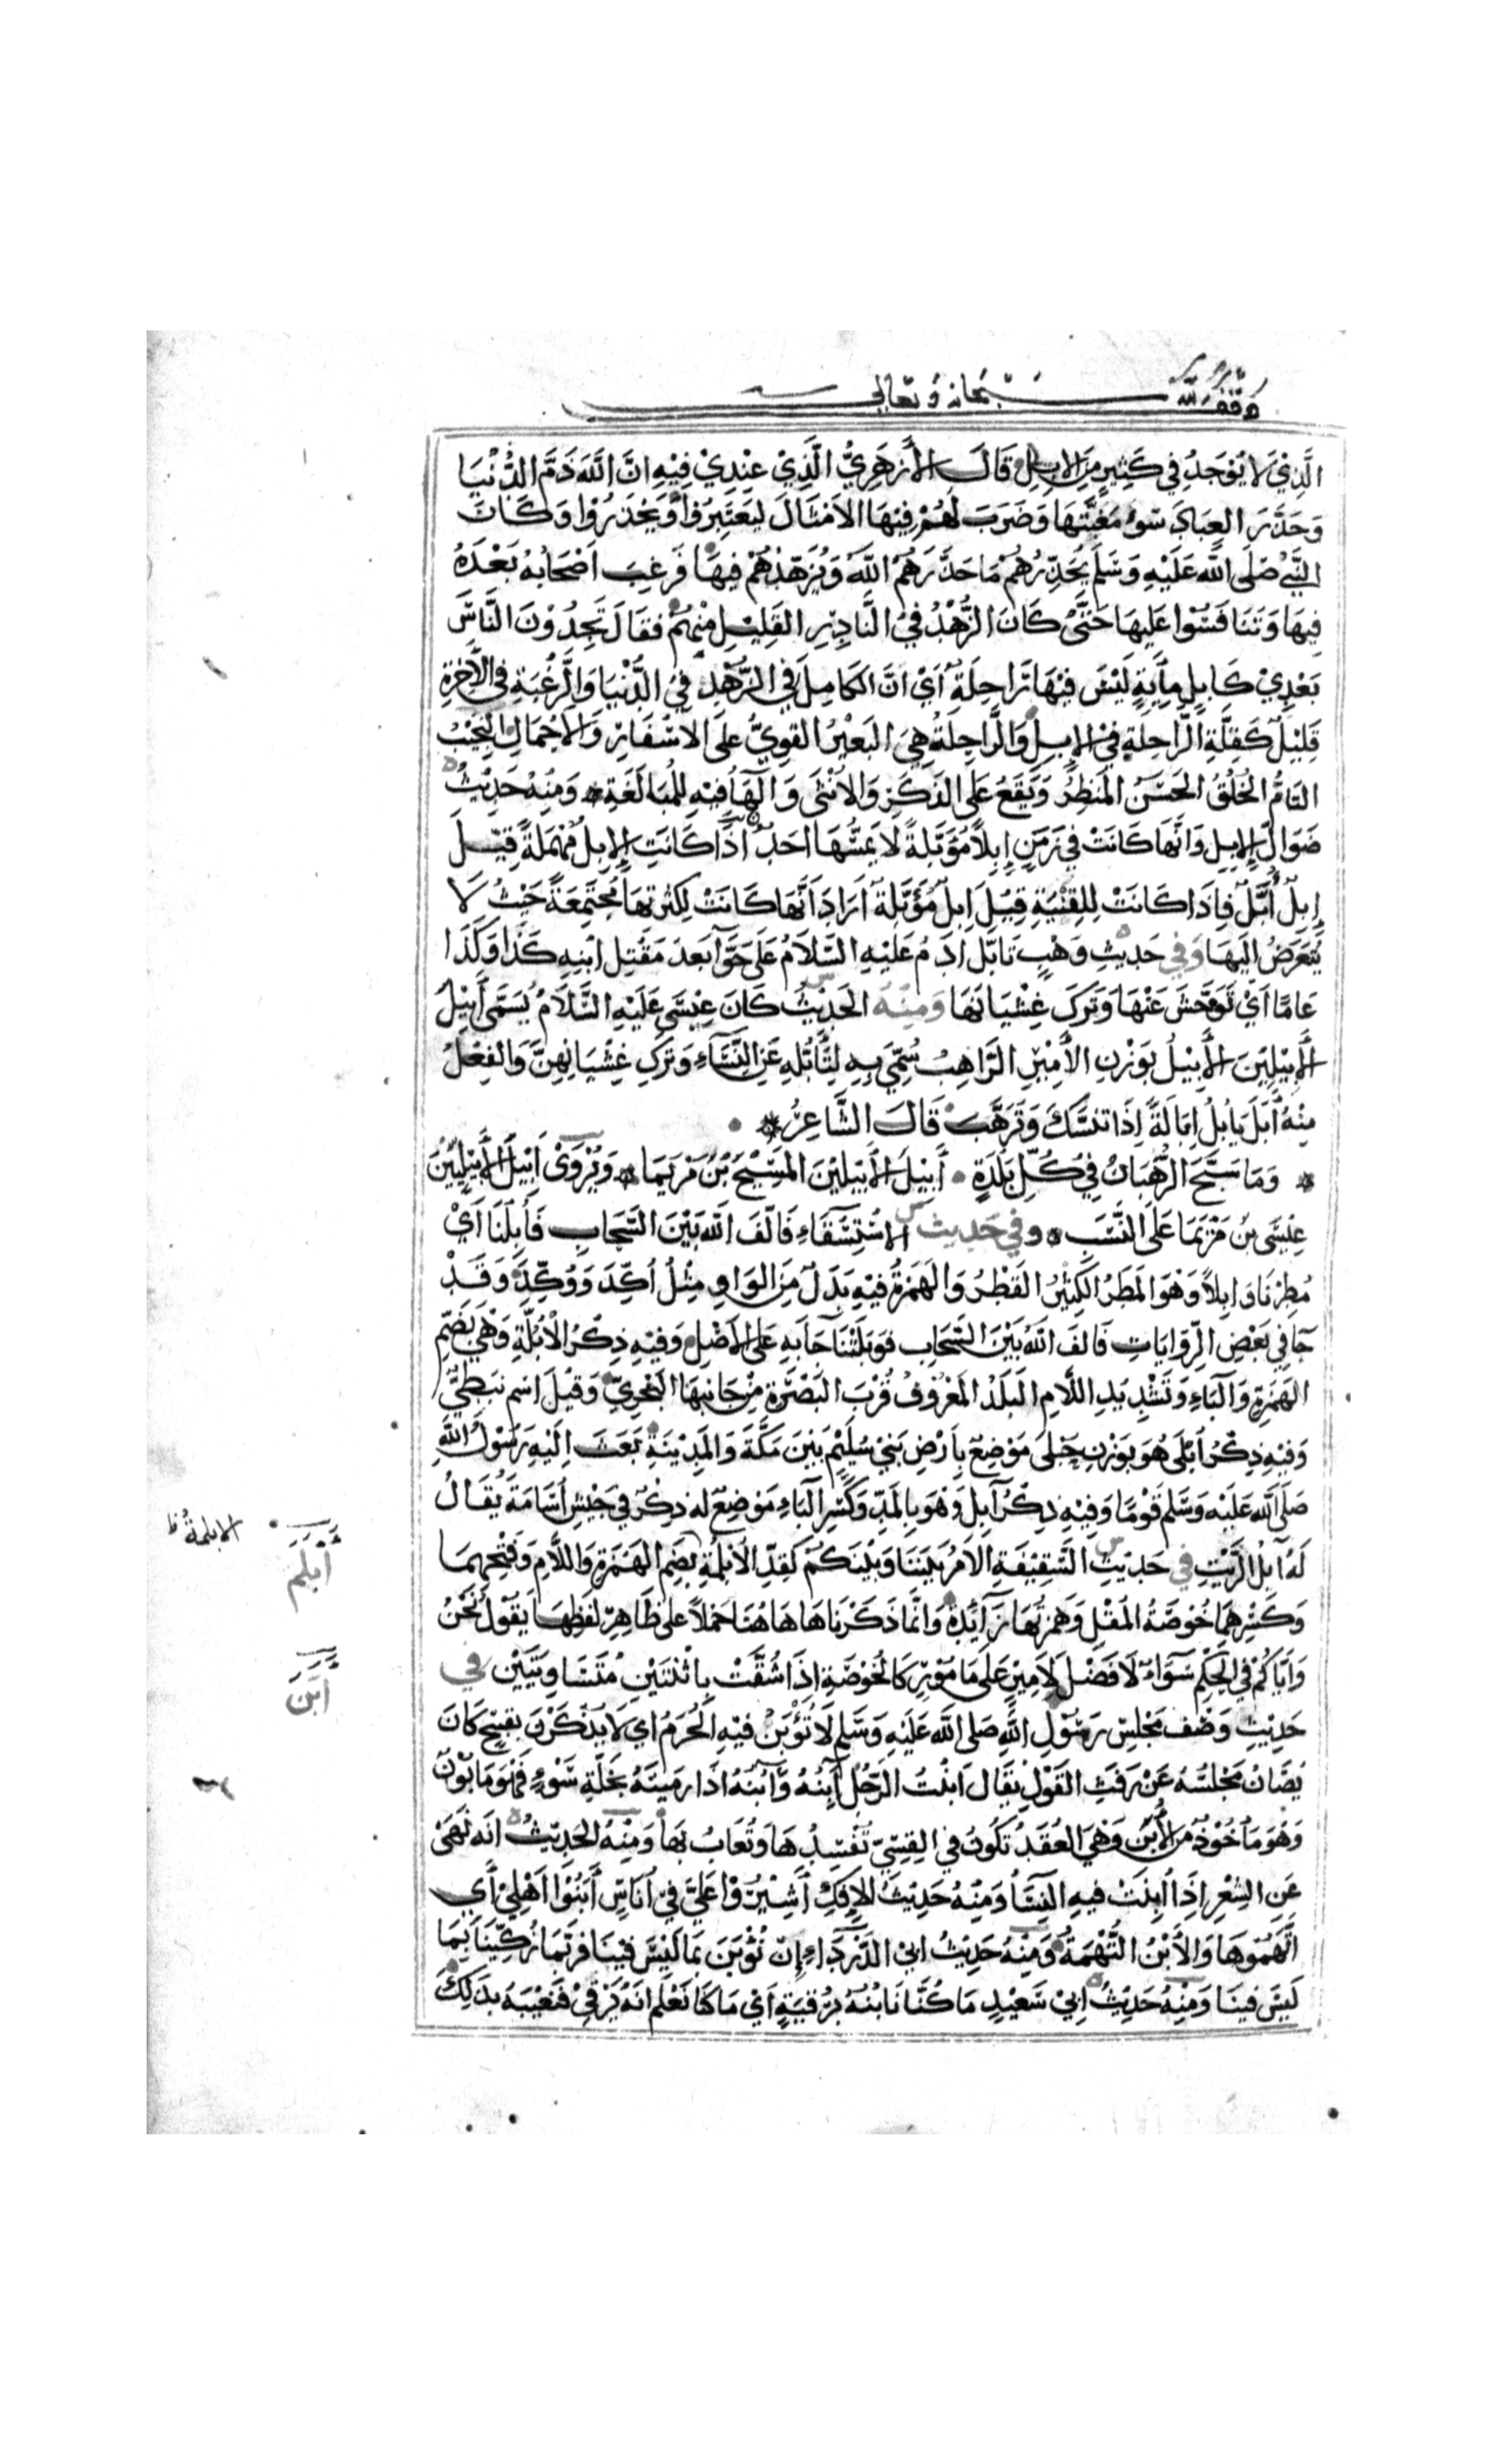 وقف لله سبحانه وتعالى
الَّذِيْ لا يُوْجَدُ في كَثِيرٍ مِنَ الإبِلِ قَالَ الأَزهَرِيُّ الَّذِيْ عِنْدِيْ فِيْهِ انَّ اللَّهَ ذَمَّ الدُّنْيَا
وَحَذَّرَ العِبَادَ سُوءَ مَغَبَّتِهَا وَضَرَبَ لَهُمْ فِيْهَا الاَمْثَالَ لِيَعْتَبِرُوْا وَيَحْذَرُوْا وَكَانَ
النَّبِيُّ صَلَى اللَّه عَلَيْهِ وَسَلَم يُحَذِّرُهُمْ مَا حَذَّرَهُم اللَّهُ وَيُزَهِّدُهُمْ فِيهَا فَرَغِبَ اَصْحَابُهُ بَعْدَهُ
فِيهَا وَتَنَافَسُوْا عَلَيهَا حَتَّى كَانَ الزُّهْدُ فِيْ النَّادِرِ القَلِيْلِ مِنْهُمْ فَقَالَ تَجِدُوْنَ النَّاسَ
بَعْدِيْ كَابِلٍ مِأَيَةٍ لَيْسَ فِيْهَا رَاحِلَةٌ اَيْ انَّ الكَامِلَ في الزُّهْدِ فِيْ الدُّنْيَا وَالرَّغْبَةِ في الآخِرَةِ
قَلِيْلٌ كَقِلَّةِ الرَّاحِلَةِ فِيْ الإبِلِ وَالرَّاحِلَةُ هِيَ البَعْيْرُ القَوِيُّ عَلَى الاسْفَارِ وَالاَحْمَالِ النَّجِيْبُ
التَامُّ الخَلْقُ الحَسَنُ المَنظَرُ وَيَقَعُ عَلى الذَكَرِ وَالاُنْثَى وَالهَاُ فِيْهِ لِلْمُبَالَغَةِ وَمِنْهُ حَدِيْثُ
ضَوَالِّ الإبِلِ وَانَّهَا كَانَتْ في زَمَنِ إِبِلاً مُؤَبَّلَةً لَا يَمَسُّهَا احَدٌ اذَا كَانَتِ الإبِلُ مُهْمَلَةً قِيْلَ
إِبِلٌ أُبَّلٌ فَاِذَا كَانَتْ لِلقِنْيَةِ قِيْلَ اِبِلٌ مُؤَبَّلَةٌ اَرَادَ اَنَّهَا كَانَتْ لِكثْرتِهَا مُجتَمِعَةً حَيْثُ لَا
يُتَعَرَضُ الَيهَا وَفي حَدِيْثِ وَهْبٍ تَابَّلَ ادَمُ عَلَيْهِ السَّلَامُ عَلَى حَوَّآ بَعدَ مَقْتِل ابْنِهِ كَذَا وَكَذَا
عَامًا اَيْ تَوَحَّشَ عَنْهَا وَتَرَكَ غِشْيَانَهَا وَمِنْهُ الحَدِيْثُ كَانَ عِيْسَى عَلَيْهِ السَّلَامُ يُسَمَّى أَبِيْلُ
الأَبِيْلِيْنَ الأَبِيْلُ بِوَزْنِ الأَمِيْرِ الرَّاهِبُ سُمِّيَ بِهِ لِتَأَبُّلِهِ عَنِ النِّسَآءِ وَتَرْكِ غِشْيَانِهِنَّ وَالفِعْلُ
مِنْهُ أَبَلَ يَابُلُ اِبَالَةً اِذَا تنسَّكَ وَتَرَهَّبَ قَالَ الشَّاعِرُ
وَمَا سَبَّحَ الرُّهْبَانُ فِيْ كُلِّ بَلدَةٍ أَبِيْلَ الأَبِيْلِيْنَ المَسِيْحَ بْنَ مَرْيَمَا وَيُرْوَىْ اَبِيْلَ الأَبِيْلِيِّيْنَ
عِيْسَى بْنَ مَرْيَمَا عَلَى النَّسَبِ وفي حَدِيث الاسْتِسْقَاءِ فَالَّفَ اللَّهُ بَيْنَ السَّحَابِ فَأُبِلْنَا اَيْ
مُطِرْنَا وَابِلاً وَهْوَ المَطَرُ الكَثِيْرُ القَطْرِ وَالهَمْزَةُ فِيْهِ بَدَلٌ مِنَ الوَاوِ مِثْلُ اُكِّدَ وَوُكِّدَ وَقَدْ
جَآ في بَعْضِ الرِّوَايَاتِ فَالفَ اللَّهُ بَيْنَ السَّحَابِ فَوَبَلَتْنَا جَآ بِهِ عَلى الاَصْلِ وَفِيْهِ ذِكْرُ الْاُبُلَّةِ وَهْيَ بِضَمِّ
الهَمْزَةِ وَالبَاءِ وَتَشْدِيْدِ اللَّامِ البَلَدُ المَعْرُوْفُ قُرْبَ البَصْرَةِ مِنْ جَانِبِهَا البَحْرِيِّ وَقِيْلَ اسْم نَبَطِيٌّ
وَفِيْهِ ذِكْرُ اُبْلَى هُوَ بِوَزْنِ حُبْلَى مَوْضِعٌ بِاَرْضِ بَنِيْ سُلَيْمٍ بَيْنَ مَكَّةَ وَالمَدِيْنَةِ بَعَثَ اِلَيْهِ رَسُوْلُ اللَّهِ
صَلَى اللَّه عَلَيْه وَسَّلم قَوْمًا وَفِيْهِ ذِكْرُ آبِلَ وَهْوَ بِالمَدِّ وَكَسْرِ البَاءِ مَوْضِعٌ لَه ذِكْرٌ في جَيْشِ اُسَامَةَ يُقَالُ
لَهُ آبِلُ الزَّيْتِ في حَدِيْثِ السَّقِيْفَةِ الاَمْرُ بَيْنَنَا وَبَيْنَكُمْ كَقِدِّ الاُبْلُمَةِ بِضَمِ الهَمْزَةِ وَاللَّامِ وَفَتْحِهِمَا
وَكَسْرِهِمَا خُوْصَةُ المُقْلِ وَهَمْزَتُهَا زَآئِدَةٌ وَانَّمَا ذَكَرْنَاهَا هَا هُنَا حَمْلاً عَلَى ظَاهِرِ لَفْظِهَا يَقُوْلُ نَحْنُ
وَاِيَّاكُمْ في الحُكِمْ سَوَاءٌ لَا فَضْلَ لِاَمِيْرٍ عَلَى مَامُوْرٍ كَالخُوْصَةِ اِذَا شُقَّتْ بِاثْنَتَيْنِ مُتَسَاوِيَتَيْن في
حَدِيْثِ وَصْف مَجْلِسِ رَسُوْلِ اللَّهِ صَلى اللَّه عَلَيْهِ وَسَّلم لَا تُؤْبَنُ فِيْهِ الحُرَمُ اي لَا يُذْكَرْنَ بِقَبِيْحٍ كَانَ
يُصَانُ مَجْلِسُهُ عَنْ رَفَثِ القَوْلِ يقَال اَبَنْتُ الرَّجُلَ آبِنُهُ وَآبُنُهُ اذَا رَمَيْتَهُ بِخَلَّةِ سَوْءٍ فَهْوَ مَابُوْنٌ
وَهُوَ مَأْخُوْذٌ من الأُبَنِ وَهْيَ العُقَدُ تَكُونُ في القِسِيّ تُفْسِدُهَا وَتُعَابُ بِهَا وَمِنْهُ الحَدِيْثُ انَه نَهَىْ
عَنِ الشِعْرِ اذَا اُبِنَتْ فِيهِ النِّسَاُ وَمِنْهُ حَدِيْثُ الاِفِكِ أَشِيْرُوْا عَلَيَّ فِيْ اُنَاسٍ أَبَنُوْا اَهْلِيْ أَي
اتَّهَمُوْهَا وَالأَبْنُ التُّهْمَةُ وَمِنْهُ حَدِيْثُ ابي الدَّرْدَاءِ إِنْ نُؤْبَنَ بَمَا لَيْسَ فِيْنَا فَرُبَّمَا زُكِّيْنَا بِمَا
لَيْسَ فِينَا وَمِنْهُ حَدِيْثُ ابِيْ سَعِيْدٍ مَا كُنَّا نَابُنُهُ بِرُقْيَةٍ اَيْ مَا كنَّا نَعْلَم انَهُ يَرْقِيْ فَنَعِيْبَهُ بِذَلِكَ
الابلمة ظ
أبلم
أبن